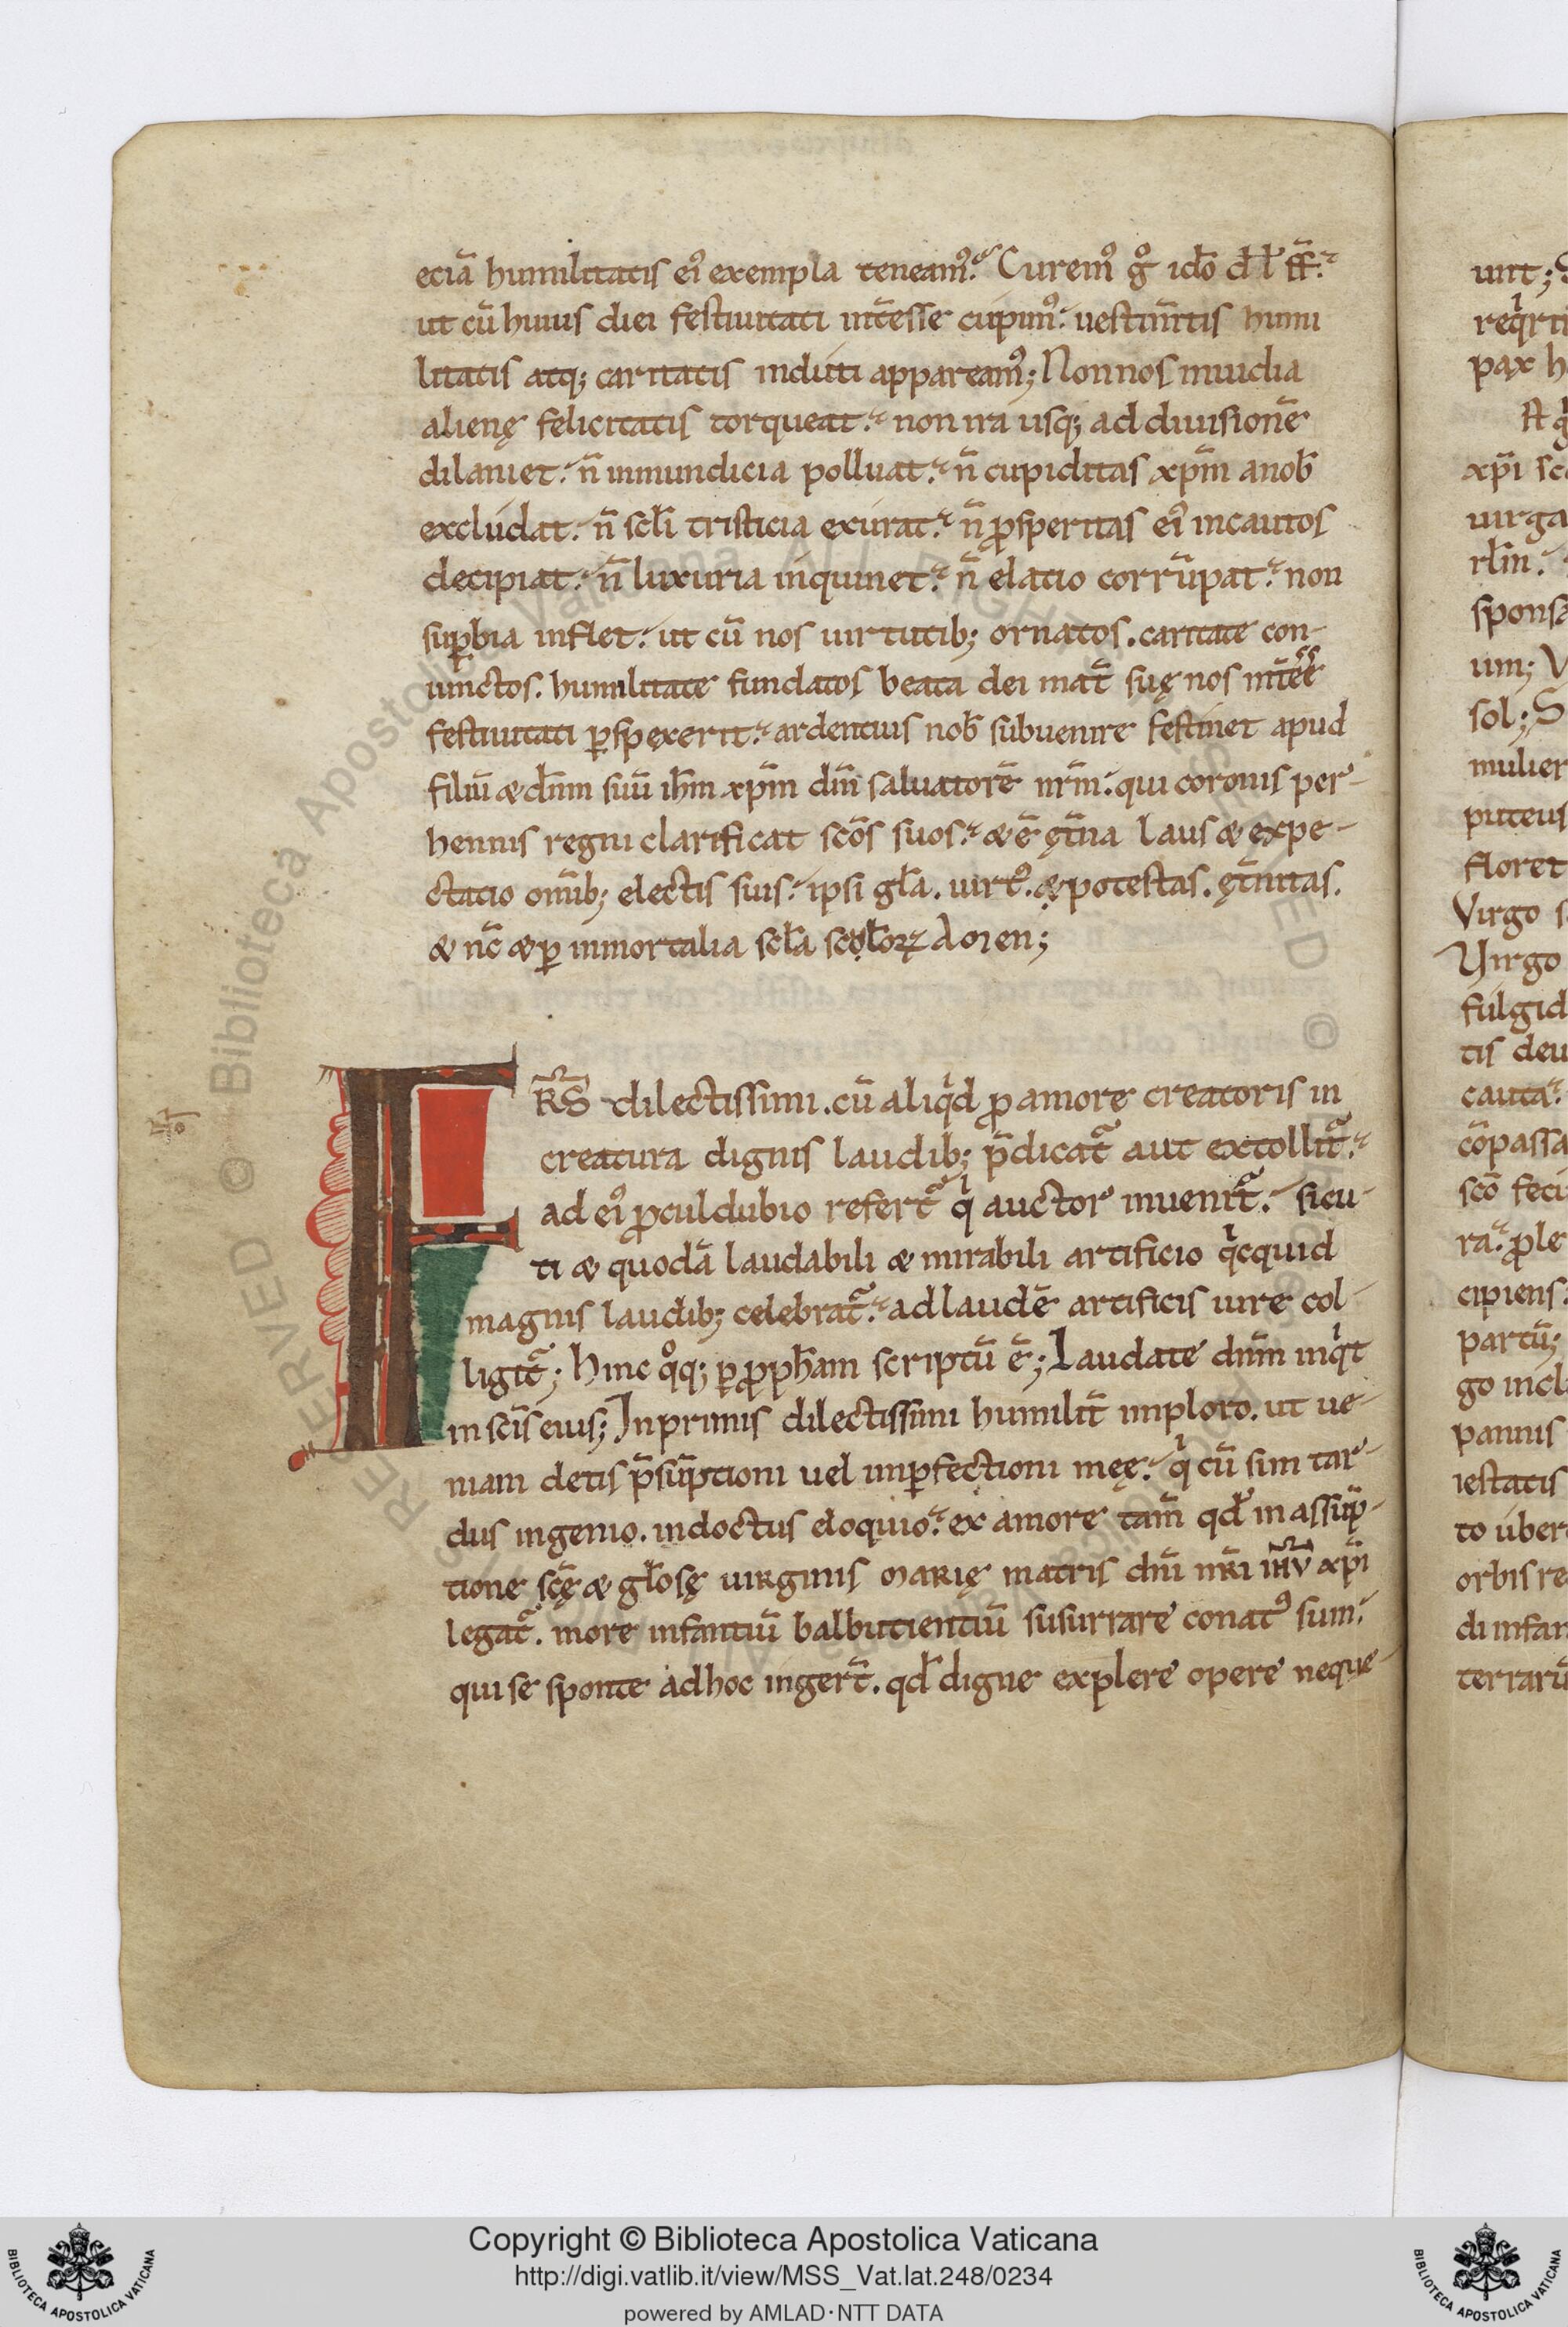 eciã humilitatis ei᷒ exempla teneam᷒. Curem᷒ g̊ ido̅ d̅l̅ ff̅.
ut cũ huius diei festiuitati int̃esse cupim᷒. uestim̅tis humi
litatis atq; caritatis induti appaream᷒; Non nos inuidia
alienę felicitatis torqueat. non ira usq; ad diuisionẽ
dilaniet. n̅ inmundicia polluat. n̅ cupiditas xp̅m a nob̅
excludat. n̅ sc̅li tristicia exurat. n̅ ꝓsperitas ei᷒ incautos
decipiat. n̅ luxuria inquinet. n̅ elatio corrũpat. non
suꝑbia inflet. ut cũ nos uirtutib; ornatos. caritate con-
iunctos. humilitate fundatos beata dei mat̃ suę nos int̃ee͛
festiuitati ꝑspexerit. ardentius nob̅ subuenire festinet apud
filiũ & dn̅m suũ ih̅m xp̅m dm̅ saluatorẽ nr̅m. qui coronis per-
hennis regni clarificat sco̅s suos. & ẽ ęt̃na laus & expe-
ctatio om̅ib; electis suis. ipsi gl̅a. uirt᷒. & potestas. ęt̃nitas.
& nc̅ & ꝑ inmortalia sc̅la sc̅loꝝ Amen;
FR̅S̅ dilectissimi. cũ aliqͥd ꝓ amore creatoris in
creatura dignis laudib; p̅dicat᷑ aut extollit᷑.
ad ei᷒ ꝓculdubio refert᷑ qͥ auctor inuenit᷑. sicu-
ti & quodã laudabili & mirabili artificio qͥcquid
magnis laudib; celebrat᷑. ad laudẽ artificis iure col-
ligit᷑; Hinc qͦq; ꝑ ꝓph̅am scriptũ ẽ; Laudate dn̅m inqͥt
in sc̅is eius; In primis dilectissimi humilit̃ imploro. ut ue-
niam detis p̅sũptioni uel imꝑfectioni męę. qͥ cũ sim tar-
dus ingenio. indoctus eloquio. ex amore tam̅ qd̅ in assũp-
tione sc̅ę & gl̅osę uirginis Marię matris dn̅i nr̅i ih̅v xp̅i
legat᷑. more infantiũ balbutientiũ susurrare conat᷒ sum.
qui se sponte ad hoc ingert̃. qd̅ digne explere opere neque
uirt; S
reqͥrit
pax h
xp̅i sc
uirga
rl̅m.
sponsa
um; V
sol; S
mulier
puteus
floret
Virgo s
Virgo
fulgid
tis deu
cauta.
cõpassa
sco̅ feci
ra. ꝓle
cipiens.
partũ;
go incl
pannis
iestatis
to uber
orbis re
di infan
terrarũ
Copyright © Biblioteca Apostolica Vaticana
http://digi.vatlib.it/view/MSS_Vat.lat.248/0234
powered by AMLAD·NTT DATA
BIBLIOTECA APOSTOLICA VATICANA
BIBLIOTECA APOSTOLICA VATICANA